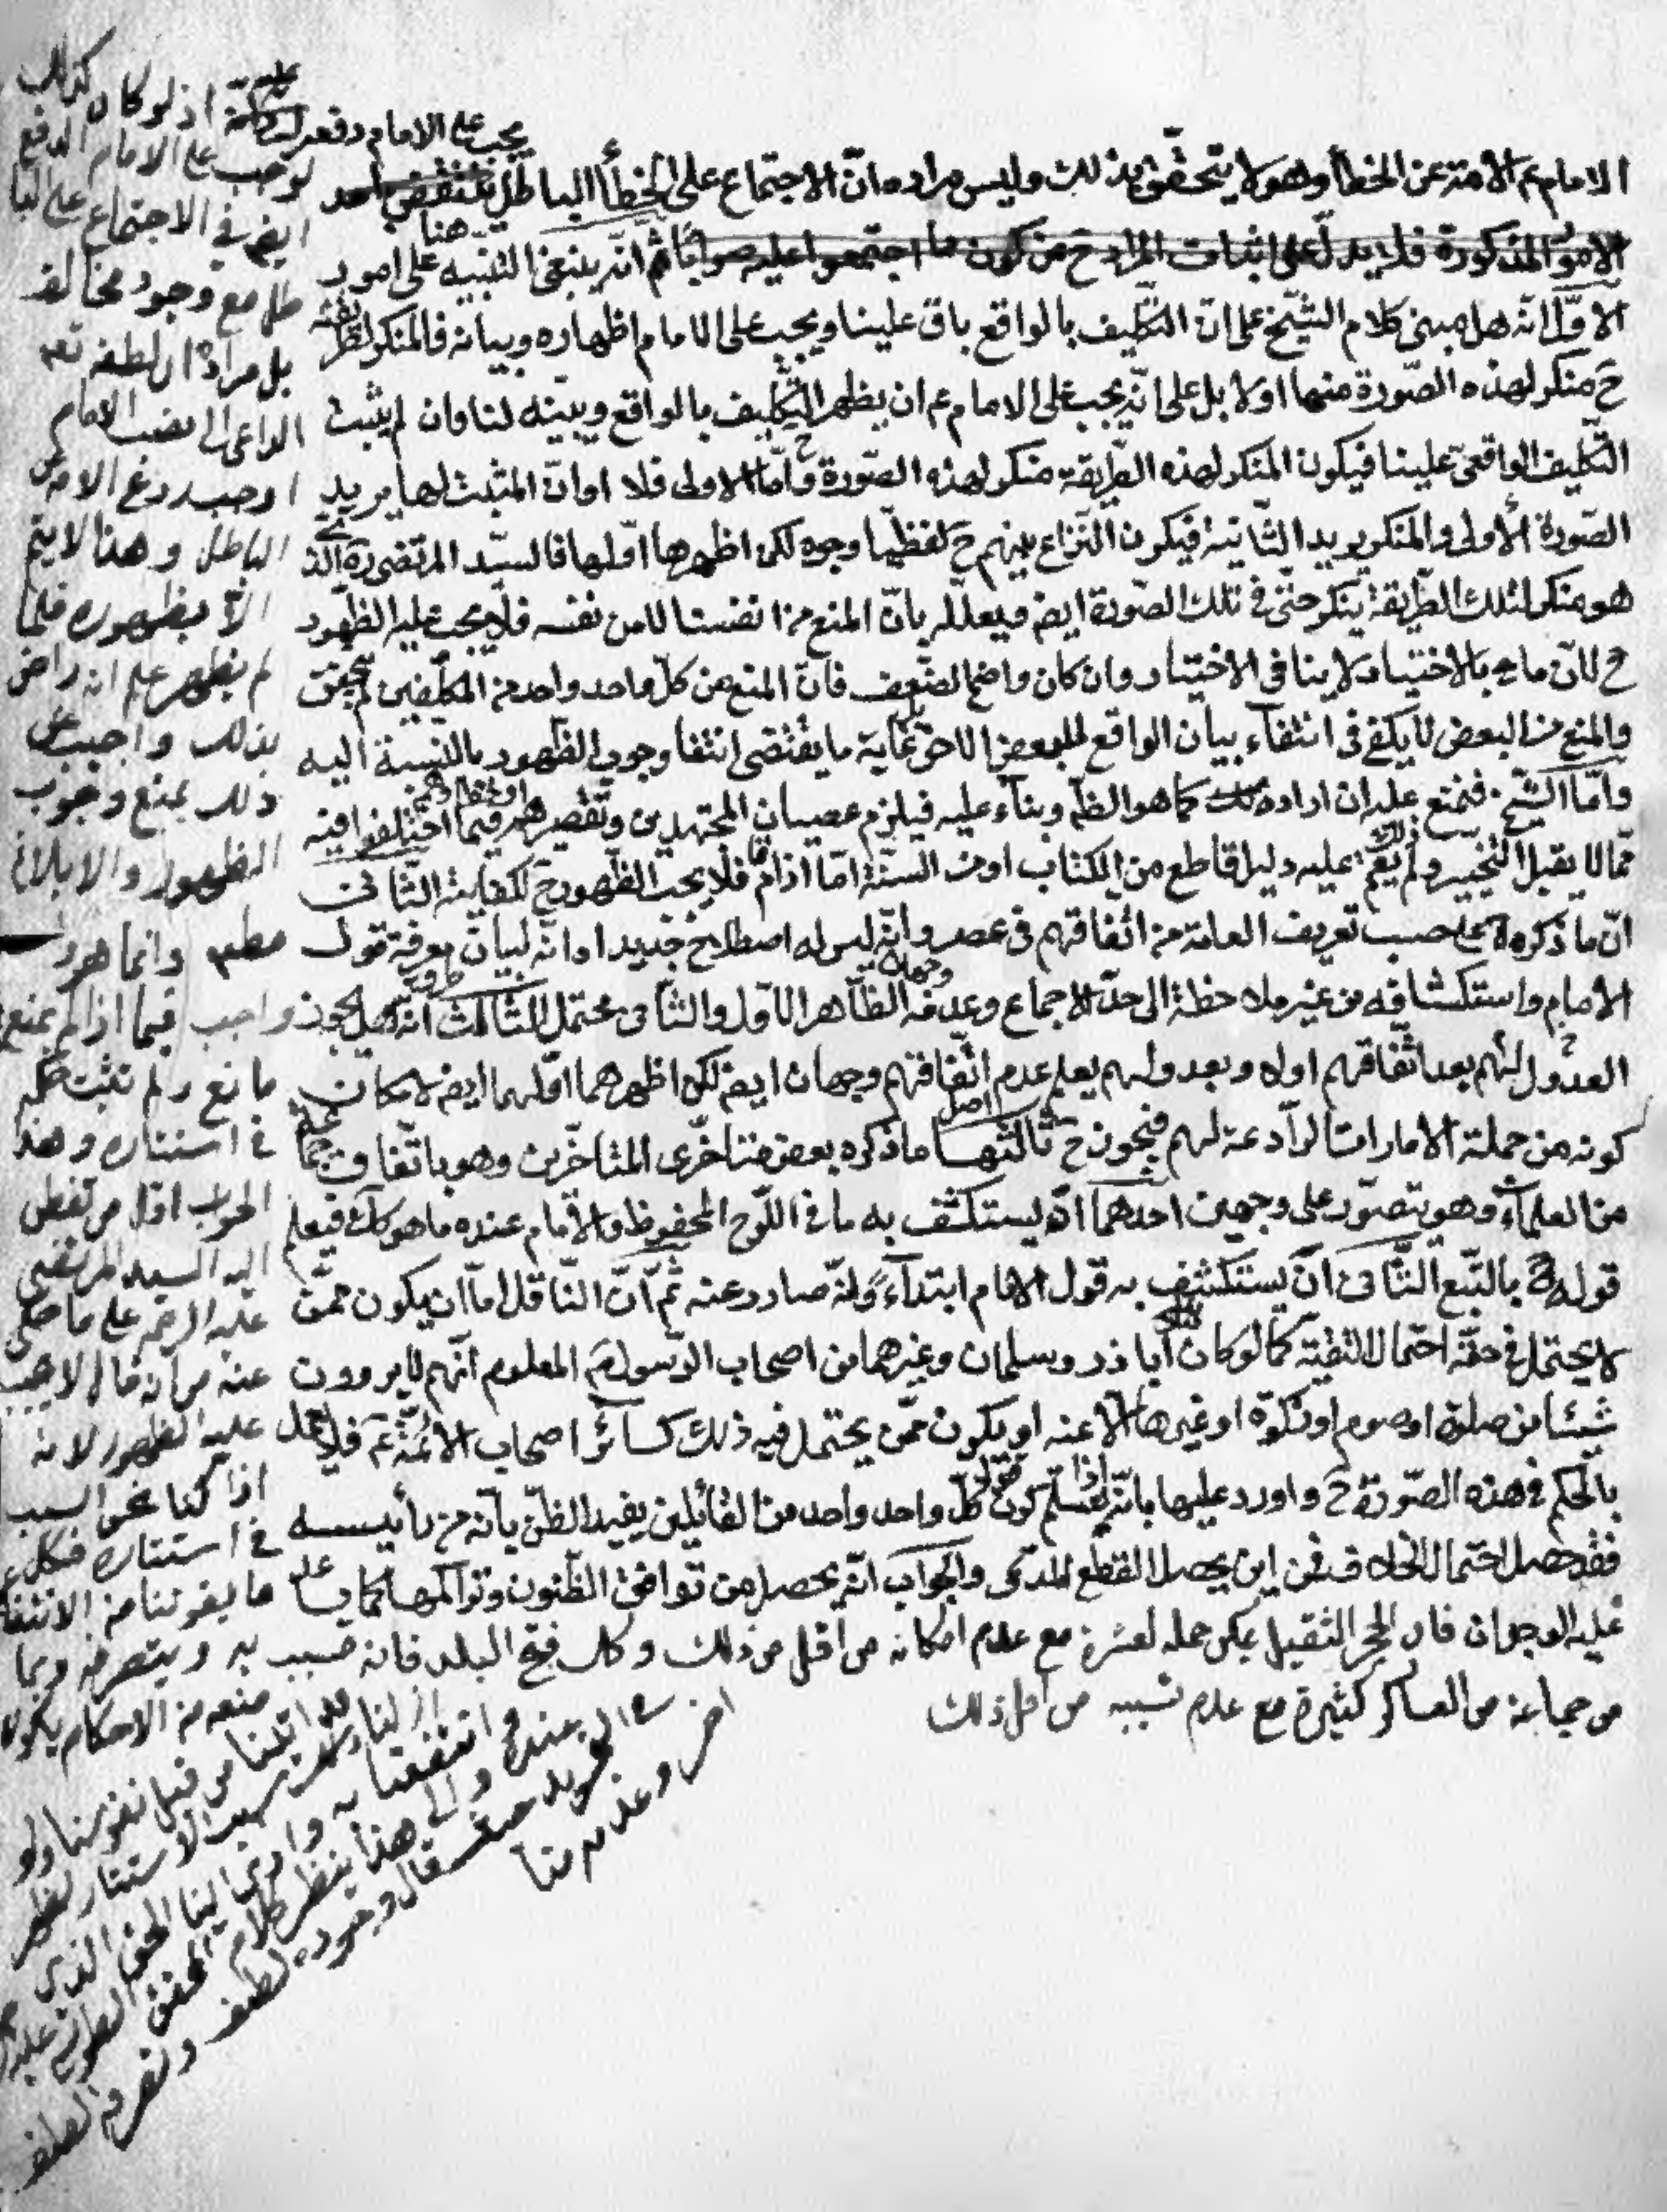 الامام عم الامة عن الخطأ وهو لا يتحقق بذلك وليس مراده ان الاجتماع على الخطأ الباطل يقتضي احد
يجب على الامام دفعه
الامور المذكورة فلا يدل على اثبات المراد ح من كون ما اجتمعوا عليه صوابا ثم انه ينبغي التنبيه هنا على امور
الاول انه هل مبنى كلام الشيخ على ان التكليف بالواقع باق علينا ويجب على الامام اظهاره وبيانه فالمنكر لطريقته
ح منكر لهذه الصورة منها اولا بل على انه يجب على الامام عم ان يظهر التكليف بالواقع ويبينه لنا وان لم يثبت
التكليف الواقعي علينا فيكون المنكر لهذه الطريقة منكر لهذه الصورة ح واما الاولى فلا او ان المثبت لها يريد
الصورة الأولى والمنكر يريد الثانية فيكون النزاع بينهم ح لفظيا وجوه لكن اظهرها اولها فالسيد المرتضى ره الذي
هو منكر لتلك الطريقة ينكر حتى في تلك الصورة ايض فيعلله بان المنع من انفسنا لا من نفسه فلا يجب عليه الظهور
ح لان ما بالاختيار لا ينافي الاختيار وان كان واضح الضعف فان المنع من كل واحد واحد من المكلفين لم يتحقق
والمنع من البعض لا يكفي في انتفاء بيان الواقع للبعض الاخر بل غاية ما يقتضي انتفا وجوب الظهور بالنسبة اليه
واما الشيخ فنمنع عليه ان اراد ذلك كما هو الظ وبناء عليه فيلزم عصيان المجتهدين وتقصيرهم فيما اختلفوا فيه
مما لا يقبل التخيير ولم يقم عليه دليل قاطع من الكتاب او من السنة اما اذا قام فلا يجب الظهور ح لكفايته الثاني
ان ما ذكره على حسب تعريف العامة من اتفاقهم في عصر وانه ليس له اصطلاح جديد او انه لبيان معرفة قول
الامام واستكشافه من غير ملاحظة الى حد الاجماع وعدمه وجهان الظاهر الاول والثاني محتمل الثالث انه هل يجوز
العدول لهم بعد اتفاقهم اولا وبعدولهم يعلم عدم اتفاقهم وجهان ايض لكن اظهرهما اولهما ايض لامكان
كونه من جملة الامارات الرادعة لهم فيجوز ح ثالثها ما ذكره بعض متاخرى المتاخرين وهو باتفاق جماعة
من العلماء وهو يتصور على وجهين احدهما انه يستكشف به ما في اللوح المحفوظ والامام عنده ما هو كك فيعلم
قوله بالتبع الثاني ان يستكشف به قول الامام ابتداء وانه صادر عنه ثم ان الناقل اما ان يكون ممن
لا يحتمل في حقه احتمال التقية كما لو كان ابا ذر وسلمان وغيرهما من اصحاب الرسول المعلوم انهم لا يروون
شيئا من صلوة او صوم او زكوة او غيرها الا عنه او يكون ممن يحتمل فيه ذلك كسائر اصحاب الائمة عم فلا
بالحكم في هذه الصورة ح واورد عليها بانه اذا سلم كون قول كل واحد واحد من القائلين يفيد الظن بانه من رأيسه
فقد حصل احتمال الخلاف فمن اين يحصل القطع للمدعى والجواب انه يحصل من توافق الظنون وتراكمها كما
عليه الوجدان فان الحجر الثقيل يمكن حمله لعشرة مع عدم امكانه من اقل من ذلك وكك فتح البلد فانه تسبب
من جماعة من العساكر كثيرة مع عدم تسببه من اقل ذلك
اذ لو كان كذلك
لوجب على الامام الدفع
ايض في الاجتماع على البا
طل مع وجود مخالف
بل مراده ان لطفه تعه
الداعي الى نصب الامام
اوجب ردع الامة عن
الباطل وهذا لا يتم
الا بظهوره فلما
لم يظهر علم انه راض
بذلك واجيب عن
ذلك بمنع وجوب
الظهور والابلاغ
مطلقا وانما هو
واجب فيما اذا لم يمنع
مانع ولم نثبت حكمه
في استتاره وهذا
الجواب اول من تفطن
اليه السيد المرتضى
عليه الرحمة على ما حكي
عنه من انه قال لا يجب
عليه الظهور لانه
اذا كنا نحن السبب
في استتاره فكل
ما يفوتنا من الانتفا
به وبتصرفه وبما
معه من الاحكام يكون
قد اتينا من قبل نفوسنا ولو
ازلنا سبب الاستتار لظهر
وانتفعنا به وادى الينا الحق الذي
عنده والى هذا ينظر كلام المحقق الطوسي عليه
في التجريد حيث قال وجوده لطف وتصرفه لطف
اخر وعدمه منا